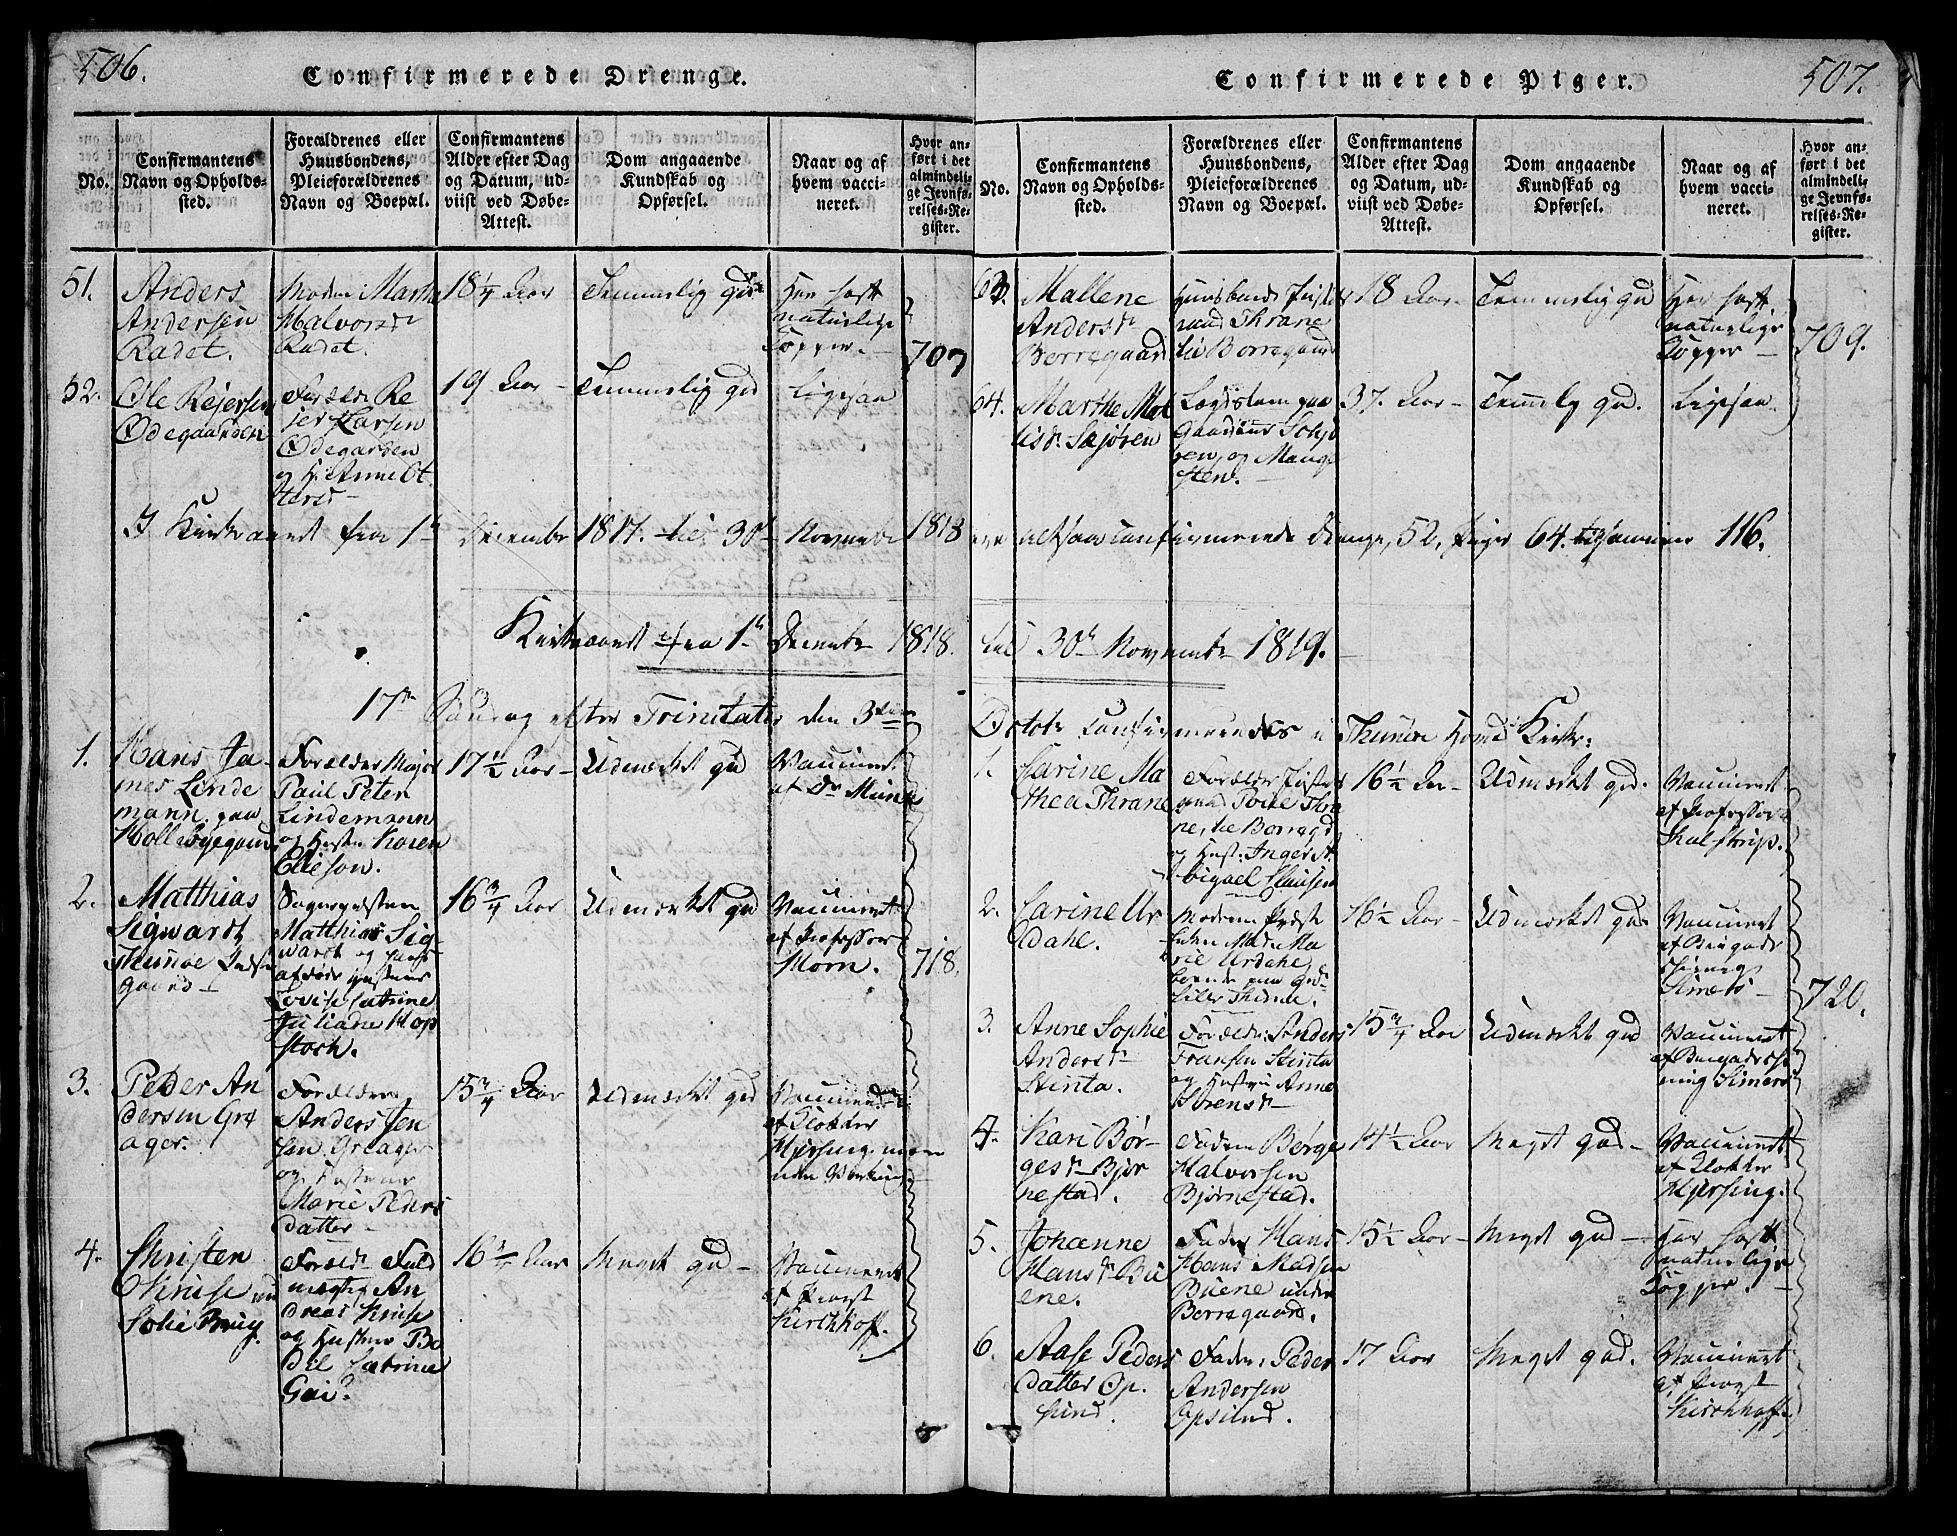 506.
Confirmerede Drenge.
No.
Confirmantens
Navn og Opholds-
sted.
Forældrenes eller
Huusbondens,
Pleieforældrenes
Navn og Boepæl.
Confirmantens
Alder efter Dag
og Datum, ud-
viist ved Døbe-
Attest.
Dom angaaende
Kundskab og
Opførsel.
Naar og af
hvem vacci-
neret.
Hvor an-
ført i det
almindeli-
ge Jevnfø-
relses-Re-
gister.
51.
Anders
Andersen
Radet.
Moder Marthe
Halvorsdr
Radet.
18 1/4 Aar
Temmelig god
Har havt
naturlige
Kopper.
707
52.
Ole Rejersen
Ødegaarden
Forældre Re
jer Larsen
Ødegarden
og H. Anne Ot
tersd
19 Aar
Temmelig god
Ligesaa
I Kirkeaaret fra 1te December 1817. til 30te November 1818
Kirkeaaret fra 1te December 1818.
17de Søndag efter Trinitatis den 3die
1.
Hans Ja-
mes Linde
mann paa
Forældre Major
Paul Peter
Lindemann
og Hustru Karen
Elieson.
17 1/2 Aar
Udmærket god
Vaccineret
af Dr Munk
2.
Matthias
Sigwardt
Thunøe
gaard
Sognepræsten
Matthias Sig-
wardt og hans
afdøde Hustrue
Lovise Catrine
Juliane Hop
stock.
16 3/4 Aar
Udmærket god
Vaccineret
af Professor
Horn.
718.
3.
Peder An
dersen Gre
ager.
Forældre
Anders Jen
sen Greager
og Hustrue
Marie Peders
datter
15 3/4 Aar
Udmærket god
Vaccineret
af Klokker
Hjersing
4.
Christen
Kruse
Solie Brug.
Foræld. Fuld
mægtig An
dreas Kruse
og Hustrue Bo
dil Catrine
16 1/4 Aar
Meget god
Vaccineret
af Provst
Kirchhoff.
507.
Confirmerede Piger.
No.
Confirmantens
Navn og Opholds-
sted.
Forældrenes eller
Huusbondens,
Pleieforældrenes
Navn og Boepæl.
Confirmantens
Alder efter Dag
og Datum, ud-
viist ved Døbe-
Attest.
Dom angaaende
Kundskab og
Opførsel.
Naar og af
hvem vacci-
neret.
Hvor an-
ført i det
almindeli-
ge Jevnfø-
relses-Re-
gister.
63.
Mallene
Andersdr
Borregaard
Huusbonde Justits
raad Thrane
til Borregaard
18 Aar
Temmelig god
Har havt
naturlige
Kopper
709.
64.
Marthe
Lægdslem paa
37. Aar
Temelig god.
Ligesaa.
ere altsaa confirmerede Drenge, 52, Piger 64. tilsammen 116.
til 30te November 1819.
October confirmeredes i Thunøe Hoved Kirke:
1.
Carine Ma
thea Thrane
Forældre Justits
raad Povel Thra
ne, til Borregd
og Hust: Inger A
bigael Clausen
16 1/2 Aar
Udmærket god.
Vaccineret
af Professor
Kalstrup.
2.
Carine Ur
dahl.
Moderen Præste
Enken Mad. Ma
rie Urdahl,
boende paa Gd.
Lille Thune.
16 1/2 Aar
Udmærket god
Vaccineret
af Brigade
Chirurg
Simers
720.
3.
Anne Sophie
Andersdr
Stinta.
Forældre: Anders
Fransen Stinta
og Hustru Anne
Sørensdr
15 3/4 Aar
Udmærket god
Vaccineret
4.
Kari Bør-
gesdr Bjør
nestad.
Fader Børge
Halvorsen
Bjørnestad.
14 1/2 Aar
Meget god
Vaccineret
af Klokker
Hjersing.
5.
Johanne
Hansdr Bü
ene.
Fader Hans
Hans Madsen
Büene under
Borregaard.
15 1/2 Aar
Meget god
Har havt
naturlige
Kopper.
6.
Aase Peders
datter Op
sund.
Fader Peder
Andersen
Opsund.
17 Aar
Meget god.
Vaccineret
af Provst
Kirchhoff.